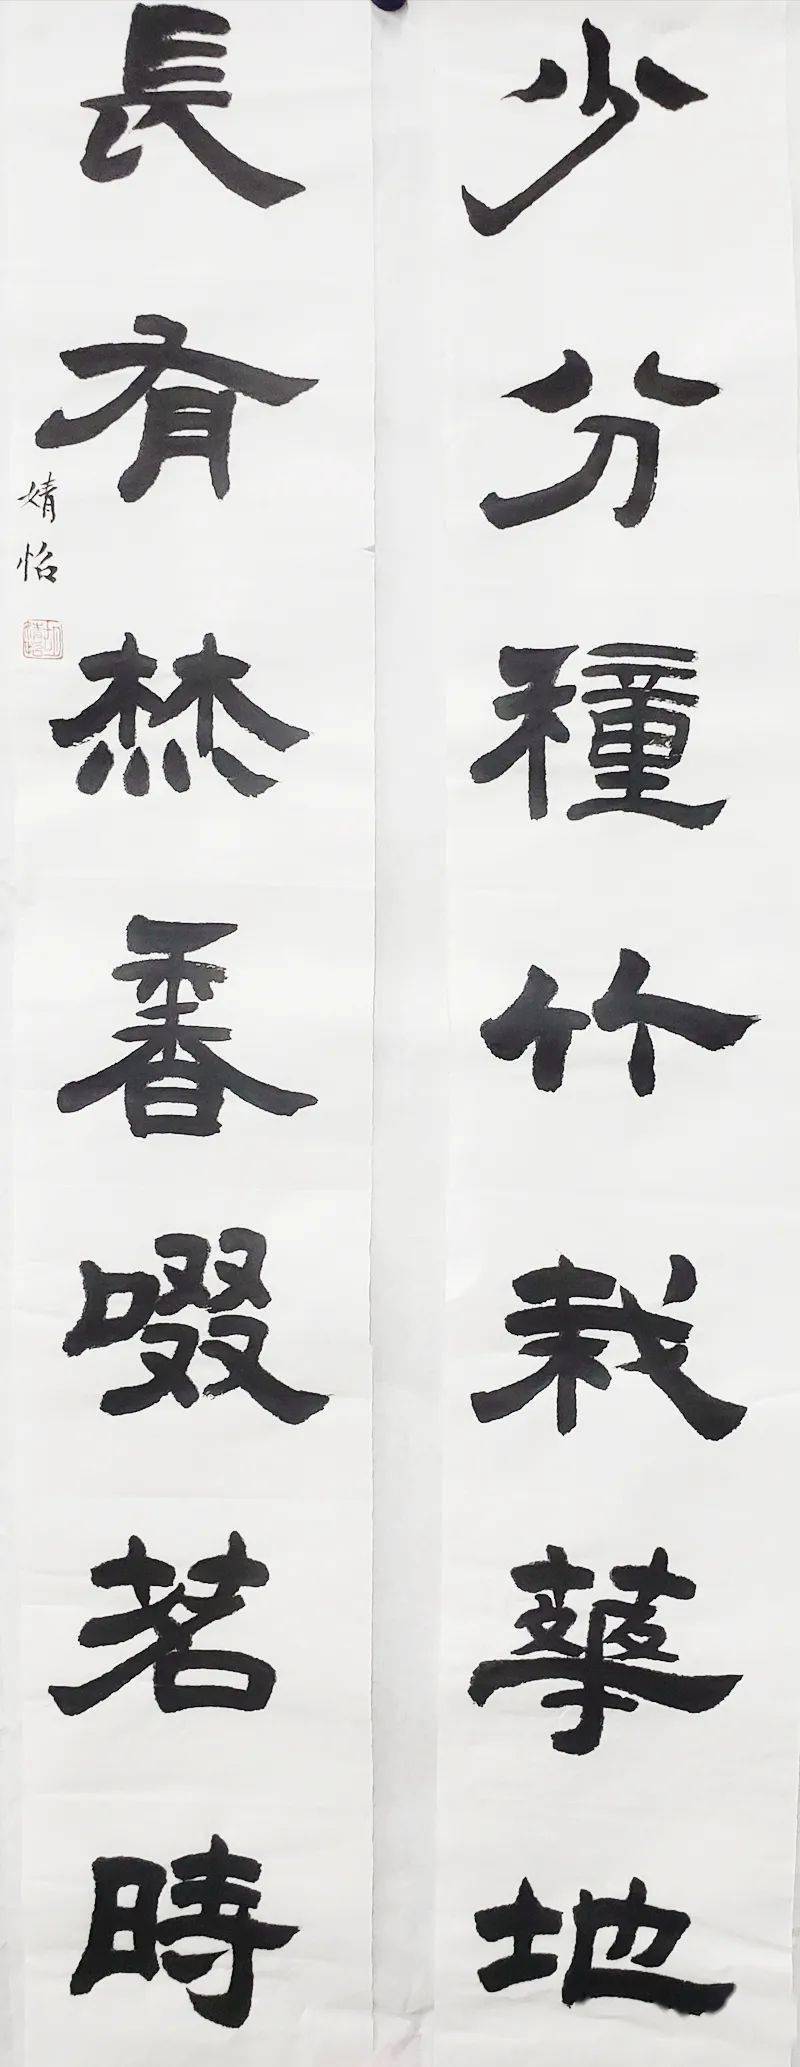 少分種竹栽華地
長有焚香啜茗時
婧怡